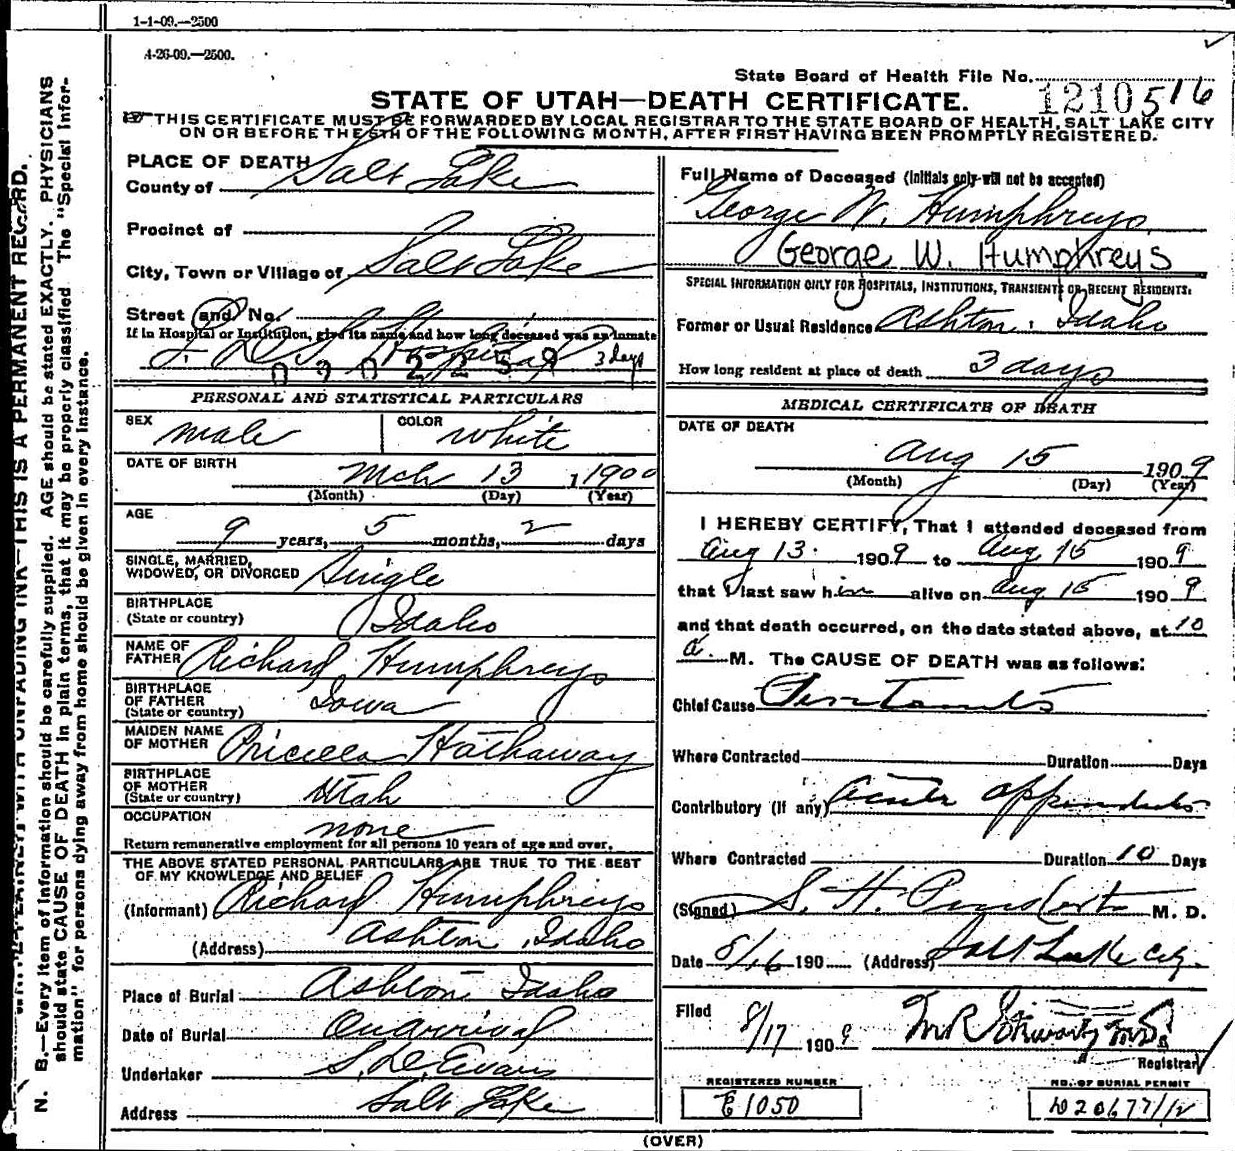 1-1-09.—2500
4-26-09.—2500.
State Board of Health File No. 12105 16
STATE OF UTAH—DEATH CERTIFICATE.
THIS CERTIFICATE MUST BE FORWARDED BY LOCAL REGISTRAR TO THE STATE BOARD OF HEALTH, SALT LAKE CITY
ON OR BEFORE THE 5TH OF THE FOLLOWING MONTH, AFTER FIRST HAVING BEEN PROMPTLY REGISTERED.
PLACE OF DEATH
County of Salt Lake
Precinct of
City, Town or Village of Salt Lake
Street and No.
If in Hospital or Institution, give its name and how long deceased was an inmate
L. D. S. Hospital 3 days
0902259
PERSONAL AND STATISTICAL PARTICULARS
SEX male COLOR white
DATE OF BIRTH Mch 13 1900
(Month) (Day) (Year)
AGE
9 years, 5 months, 2 days
SINGLE, MARRIED,
WIDOWED, OR DIVORCED Single
BIRTHPLACE
(State or country) Idaho
NAME OF
FATHER Richard Humphreys
BIRTHPLACE
OF FATHER
(State or country) Iowa
MAIDEN NAME
OF MOTHER Pricilla Hathaway
BIRTHPLACE
OF MOTHER
(State or country) Utah
OCCUPATION
none
Return remunerative employment for all persons 10 years of age and over.
THE ABOVE STATED PERSONAL PARTICULARS ARE TRUE TO THE BEST
OF MY KNOWLEDGE AND BELIEF
(Informant) Richard Humphreys
(Address) Ashton, Idaho
Place of Burial Ashton Idaho
Date of Burial On arrival
Undertaker S. D. Evans
Address Salt Lake
Full Name of Deceased (Initials only will not be accepted)
George W. Humphreys
George W. Humphreys
SPECIAL INFORMATION ONLY FOR HOSPITALS, INSTITUTIONS, TRANSIENTS OR RECENT RESIDENTS:
Former or Usual Residence Ashton, Idaho
How long resident at place of death 3 days
MEDICAL CERTIFICATE OF DEATH
DATE OF DEATH
Aug 15 1909
(Month) (Day) (Year)
I HEREBY CERTIFY, That I attended deceased from
Aug 13 1909 to Aug 15 1909
that I last saw him alive on Aug 15 1909
and that death occurred, on the date stated above, at 10
a. M. The CAUSE OF DEATH was as follows:
Chief Cause
Where Contracted Duration Days
Contributory (if any) Acute appendicitis
Where Contracted Duration 10 Days
(Signed) S. H. M. D.
Date 8/16 190 (Address) Salt Lake City.
Filed
8/17 1909
Registrar
REGISTERED NUMBER
E1050
NO. OF BURIAL PERMIT
(OVER)
N. B.—Every item of information should be carefully supplied. AGE should be stated EXACTLY. PHYSICIANS
should state CAUSE OF DEATH in plain terms, that it may be properly classified The "Special Infor-
mation" for persons dying away from home should be given in every instance.
WITH UNFADING INK—THIS IS A PERMANENT RECORD.